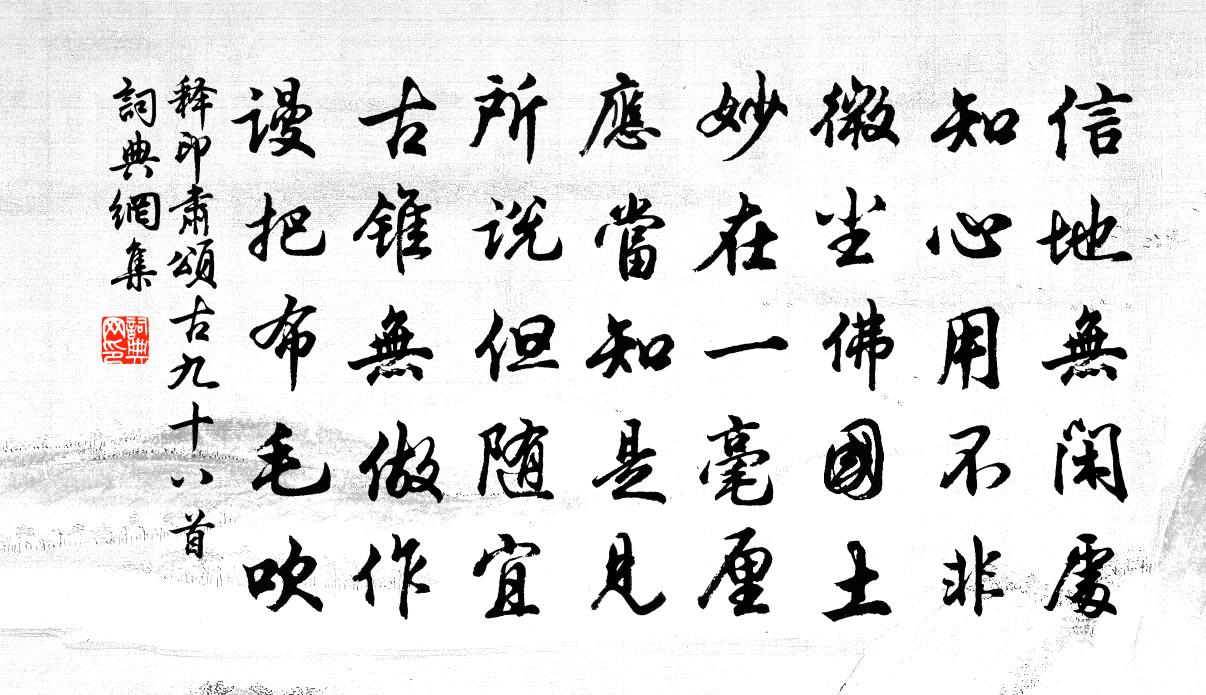 信地無閑處
知心用不非
微尘佛國土
妙在一毫厘
應當知是見
所说但随宜
古錐無做作
謾把布毛吹
释印肅頌古九十八首
詞典網集
詞典网